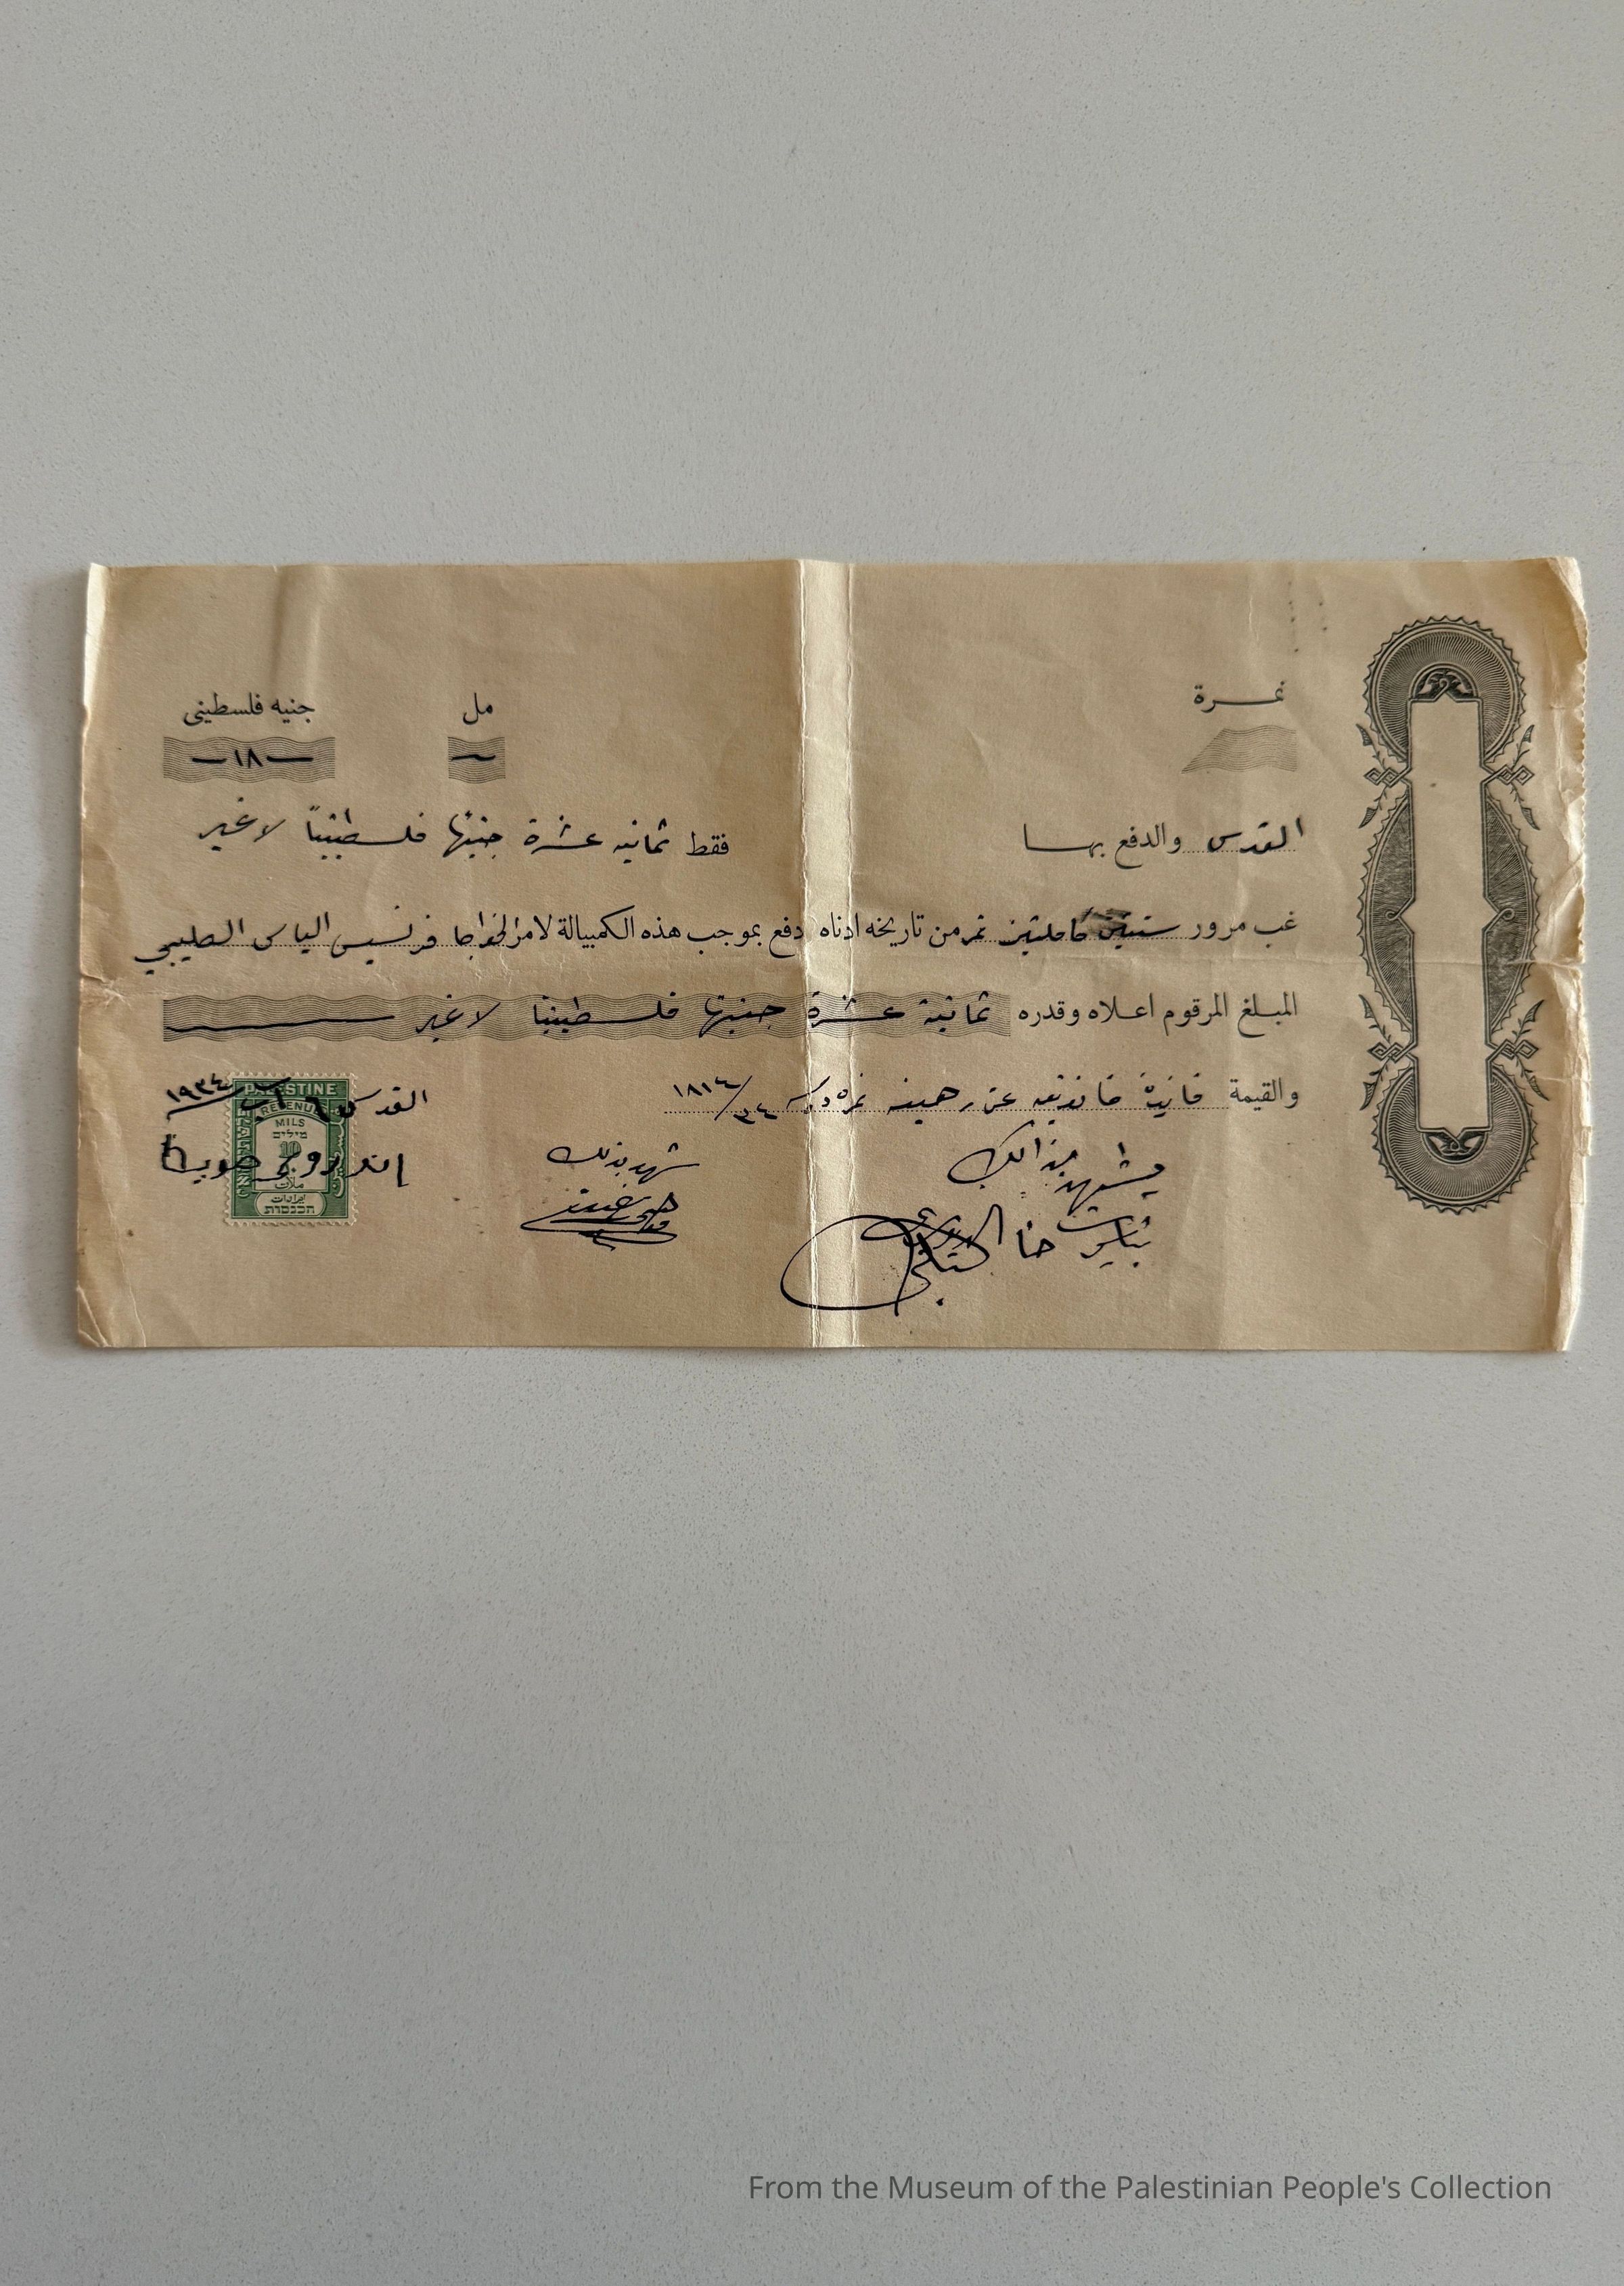 نمرة
مل
جنيه فلسطيني
—١٨—
القدس والدفع بها
فقط ثمانيه عشرة جنيهًا فلسطينيًا لا غير
غب مرور سنتين كاملتين تمر من تاريخه ادناه ادفع بموجب هذه الكمبيالة لامر الخواجا فرنسيس الياس الصليبي
المبلغ المرقوم اعلاه وقدره ثمانية عشرة جنيهًا فلسطينيًا لا غير
والقيمة فائدة قانونيه عن رهينه نمره ١٨١٤/٣٤
القدس ٦ آب ١٩٣٤
PALESTINE
REVENUE
MILS
מילים
10
ملات
ايرادات
הכנסות
شهد بذلك
يشهد بذالك
حنا
From the Museum of the Palestinian People's Collection